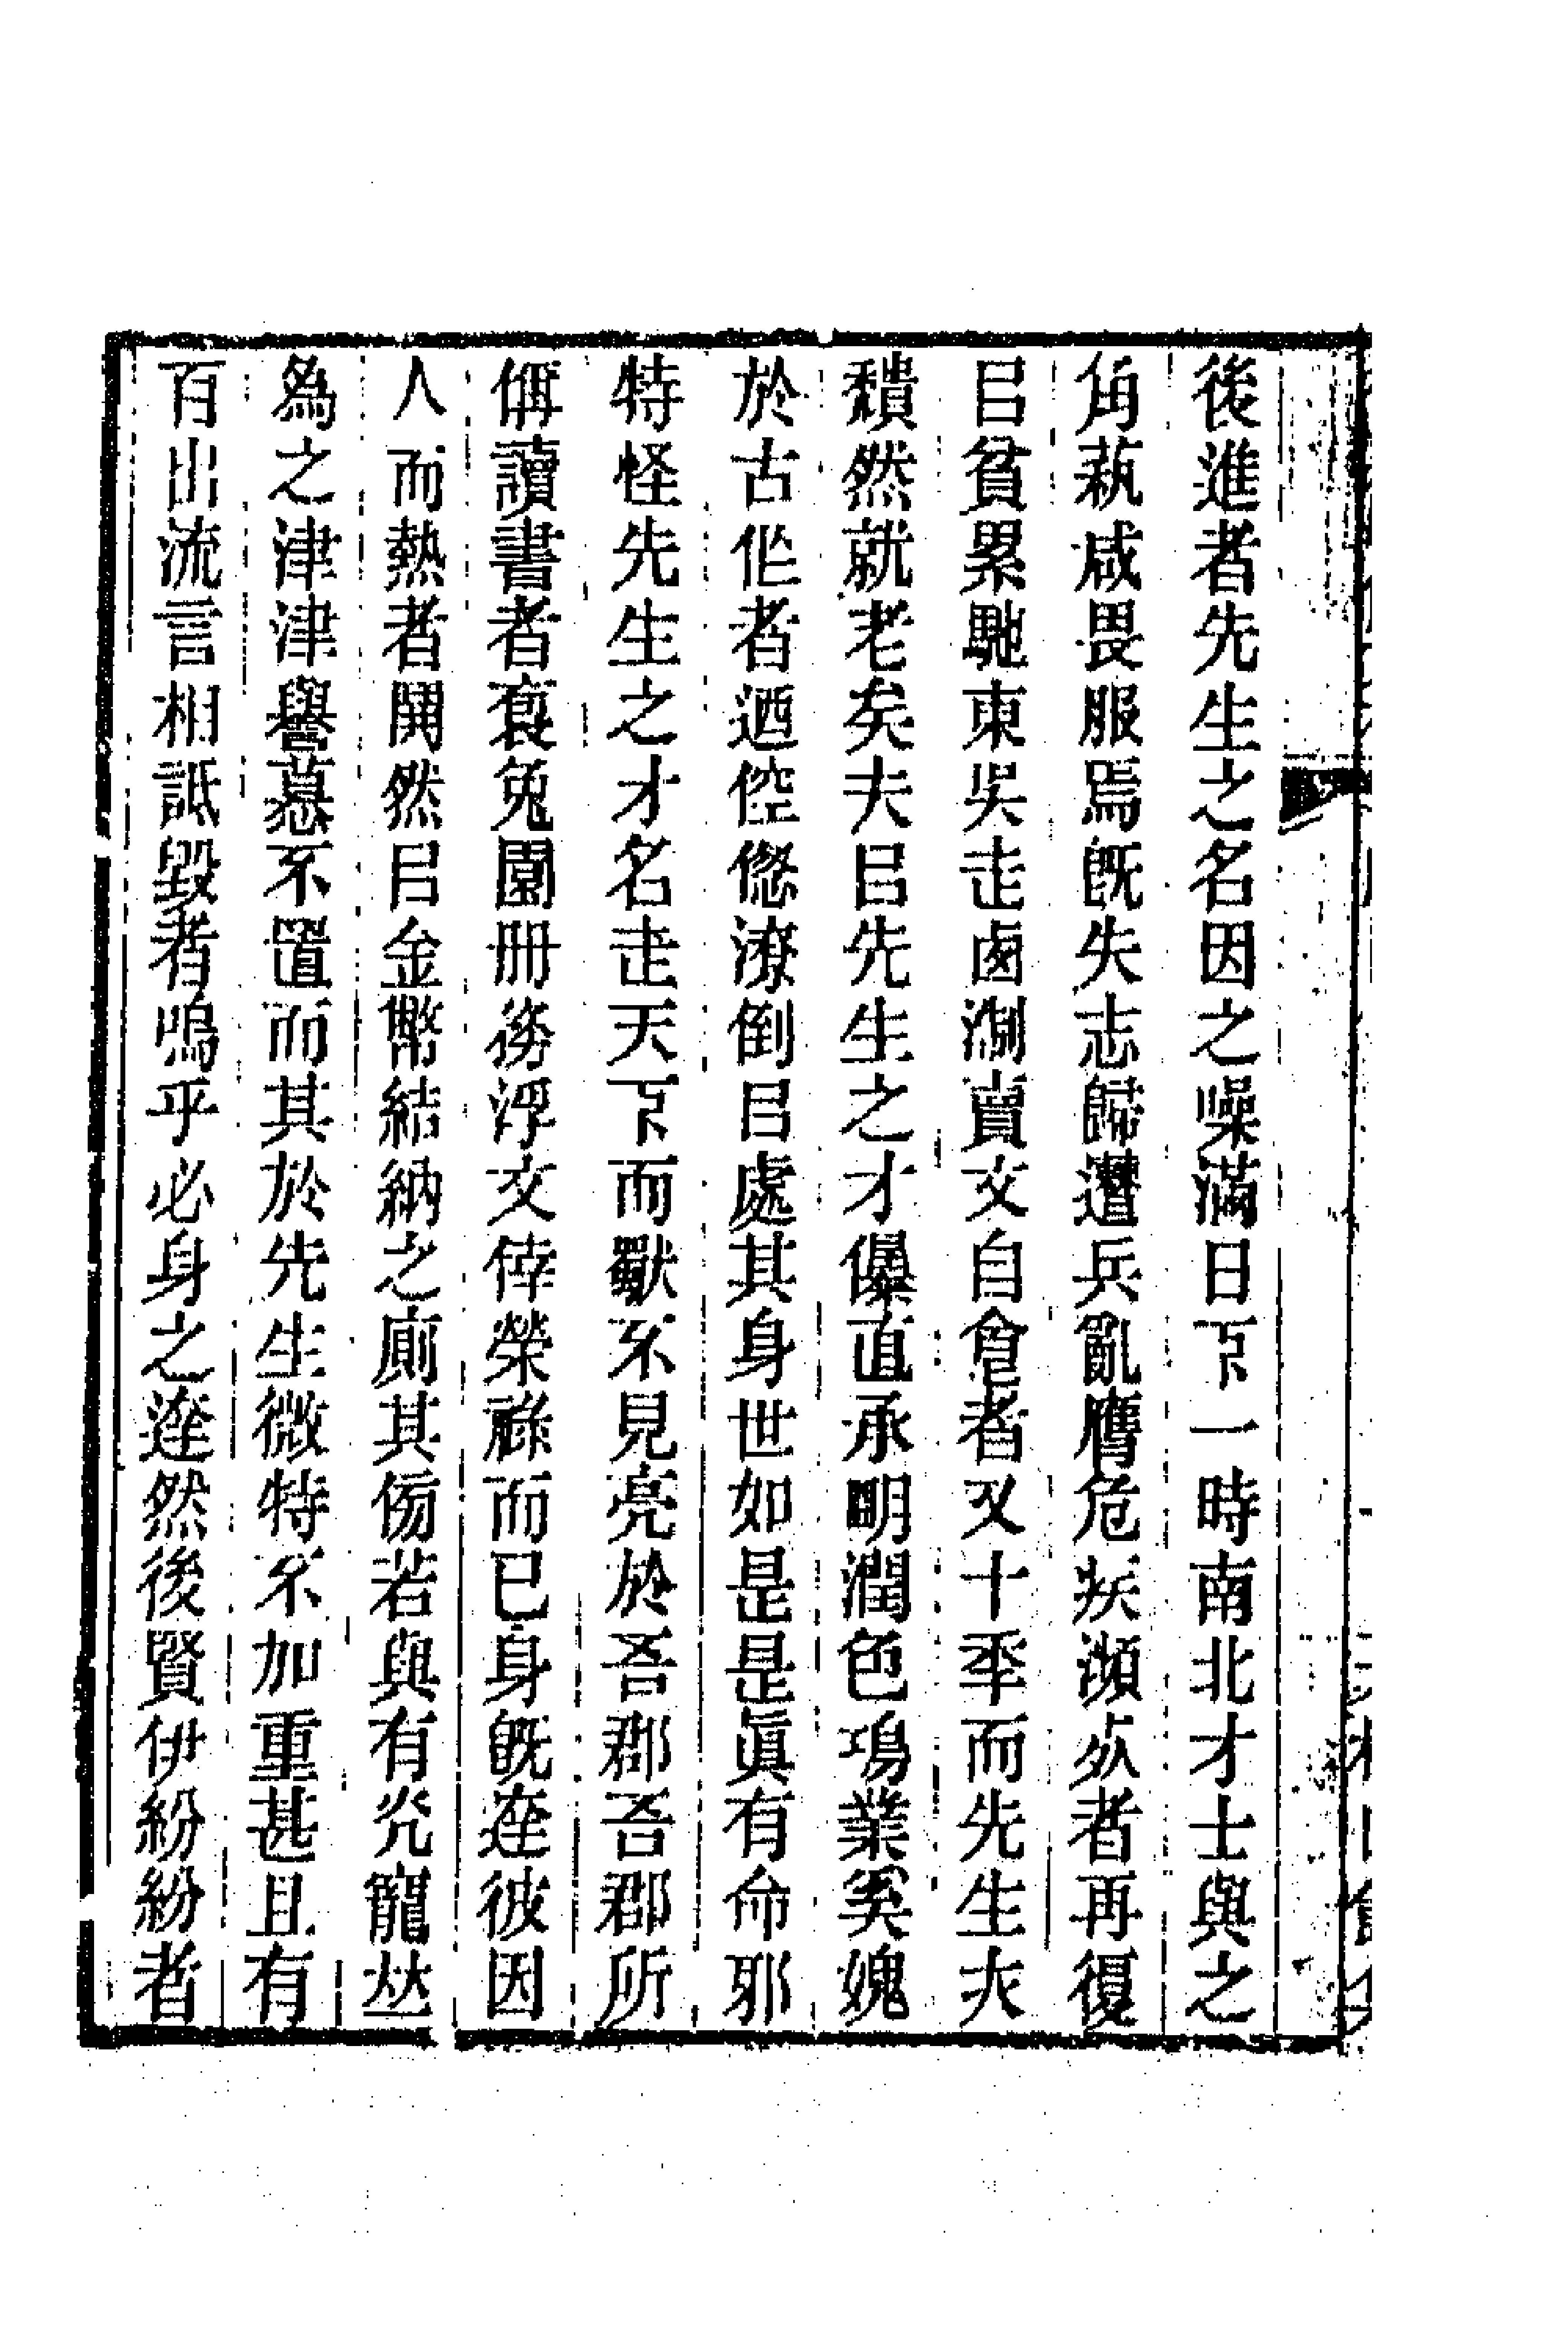 後進者先生之名因之噪滿日下一時南北才士與之
角蓺咸畏服焉旣失志歸遭兵亂膺危疾瀕㱙者再復
㠯貧累馳東吳走鹵㵎賣文自食者又十秊而先生夫
穨然就老矣夫㠯先生之才儤直承明潤色鴻業奚媿
於古作者迺倥偬潦倒㠯處其身世如是是眞有命耶
特怪先生之才名走天下而獸不見亮於吾郡吾郡所
偁讀書者裒兔園冊務浮文倖榮祿而已身旣達彼因
人而熱者鬨然㠯金幣結納之廁其㑂若與有光寵㚘
爲之津津譽慕不置而其於先生微特不加重甚且有
百出流言相詆毀者嗚乎必身之達然後賢伊紛紛者